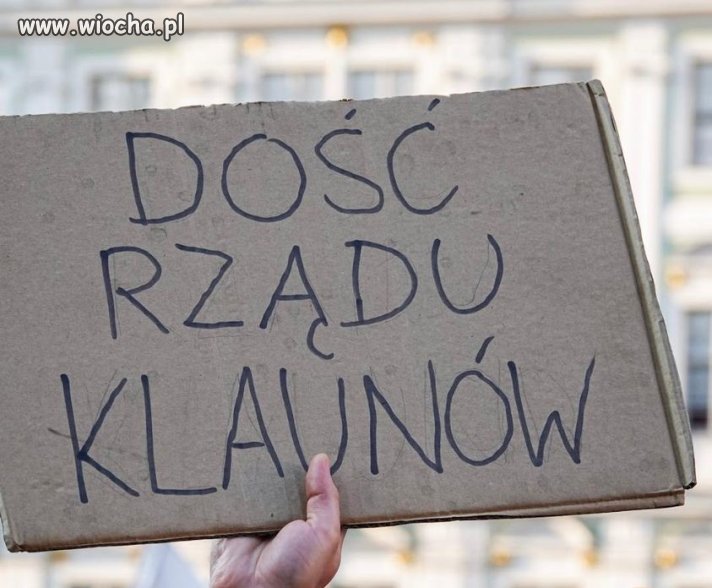 www.wiocha.pl
DOŚĆ
RZĄDU
KLAUNÓW